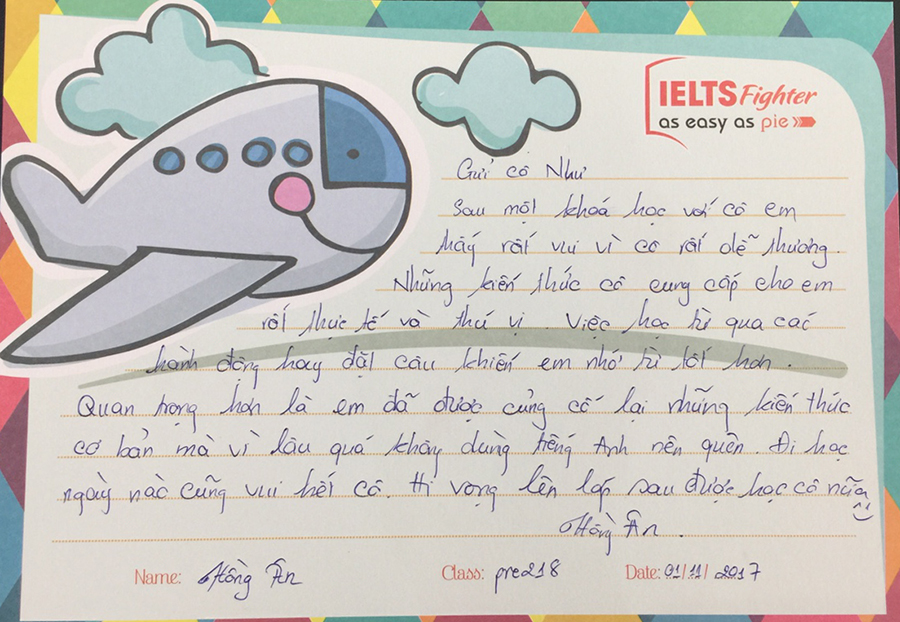 IELTS Fighter
as easy as pie
Gửi cô Như
Sau một khoá học với cô em
thấy rất vui vì cô rất dễ thương.
Những kiến thức cô cung cấp cho em
rất thực tế và thú vị. Việc học từ qua các
hành động hay đặt câu khiến em nhớ từ tốt hơn.
Quan trọng hơn là em đã được củng cố lại những kiến thức
cơ bản mà vì lâu quá không dùng tiếng Anh nên quên. Đi học
ngày nào cũng vui hết cô. Hi vọng lên lớp sau được học cô nữa ^^
Hồng Ân.
Name: Hồng Ân Class: pre218 Date: 01/11/2017